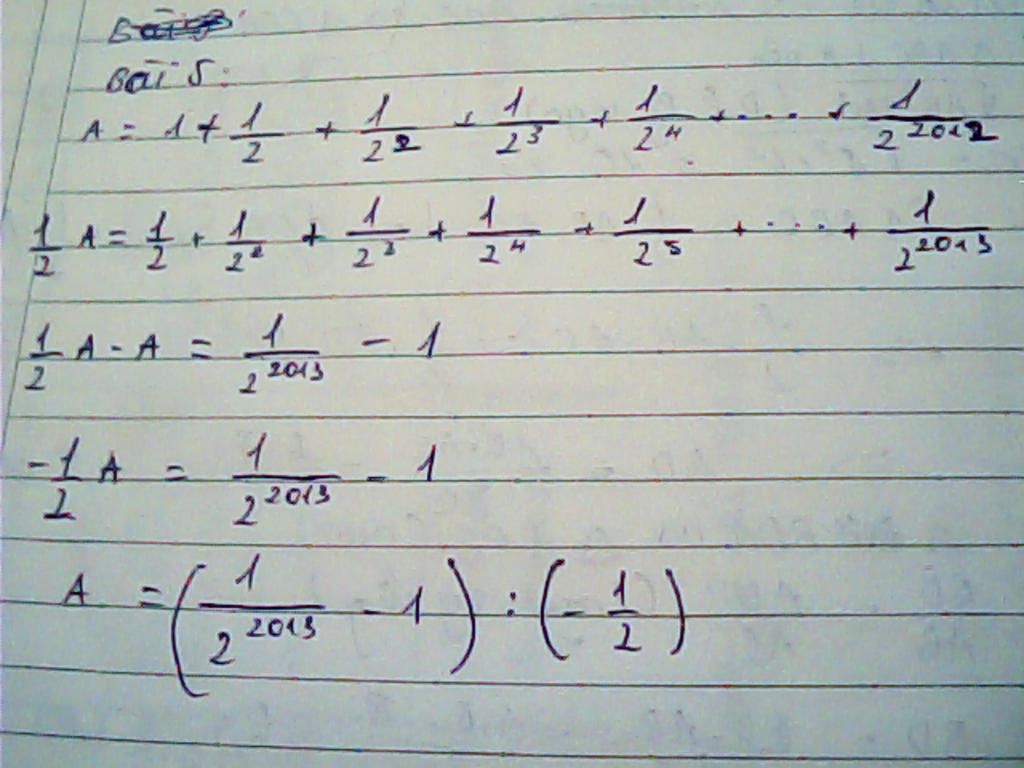 Bài 5:
A = 1 + 1/2 + 1/2^2 + 1/2^3 + 1/2^4 + ... + 1/2^2012
1/2 A = 1/2 + 1/2^2 + 1/2^3 + 1/2^4 + 1/2^5 + ... + 1/2^2013
1/2 A - A = 1/2^2013 - 1
-1/2 A = 1/2^2013 - 1
A = (1/2^2013 - 1) : (-1/2)